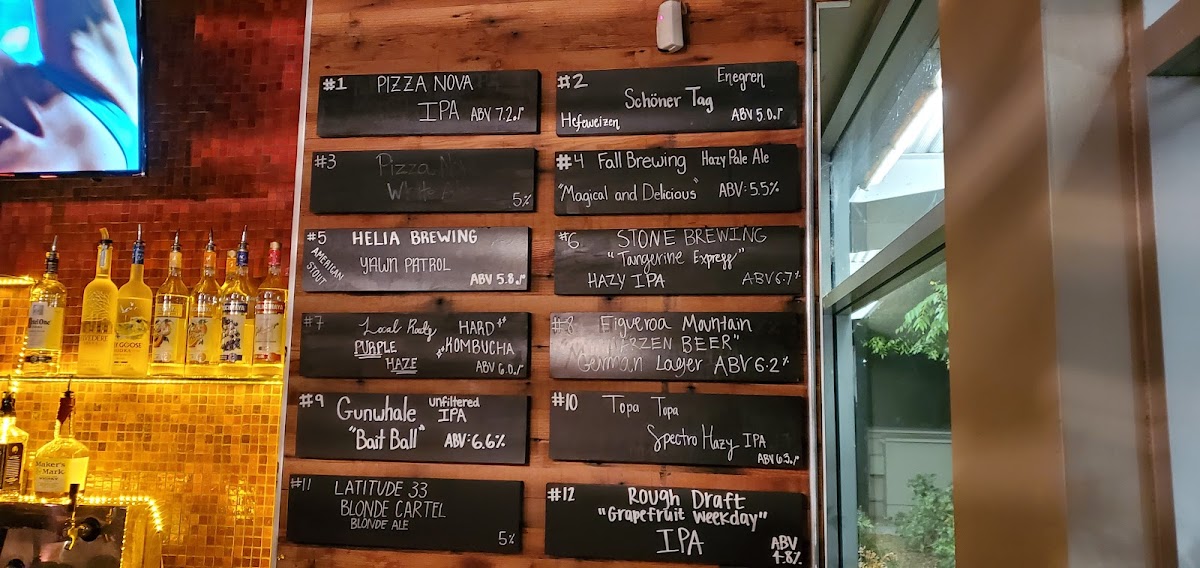 #1 PIZZA NOVA
IPA ABV 7.2%
#2 Enegren
Schöner Tag
Hefaweizen ABV 5.0%
#3 Pizza
5%
#4 Fall Brewing Hazy Pale Ale
"Magical and Delicious" ABV: 5.5%
#5 HELIA BREWING
AMERICAN STOUT
YAWN PATROL
ABV 5.8%
#6 STONE BREWING
"Tangerine Express"
HAZY IPA ABV 6.7%
#7 Local Roots HARD
PURPLE KOMBUCHA
HAZE ABV 6.0%
#8 Figueroa Mountain
BEER"
German Lager ABV 6.2%
#9 Gunwhale unfiltered
IPA
"Bait Ball" ABV: 6.6%
#10 Topa Topa
Spectro Hazy IPA
ABV 6.3%
#11 LATITUDE 33
BLONDE CARTEL
BLONDE ALE
5%
#12 Rough Draft
"Grapefruit Weekday"
IPA ABV
4.8%
Maker's
Mark